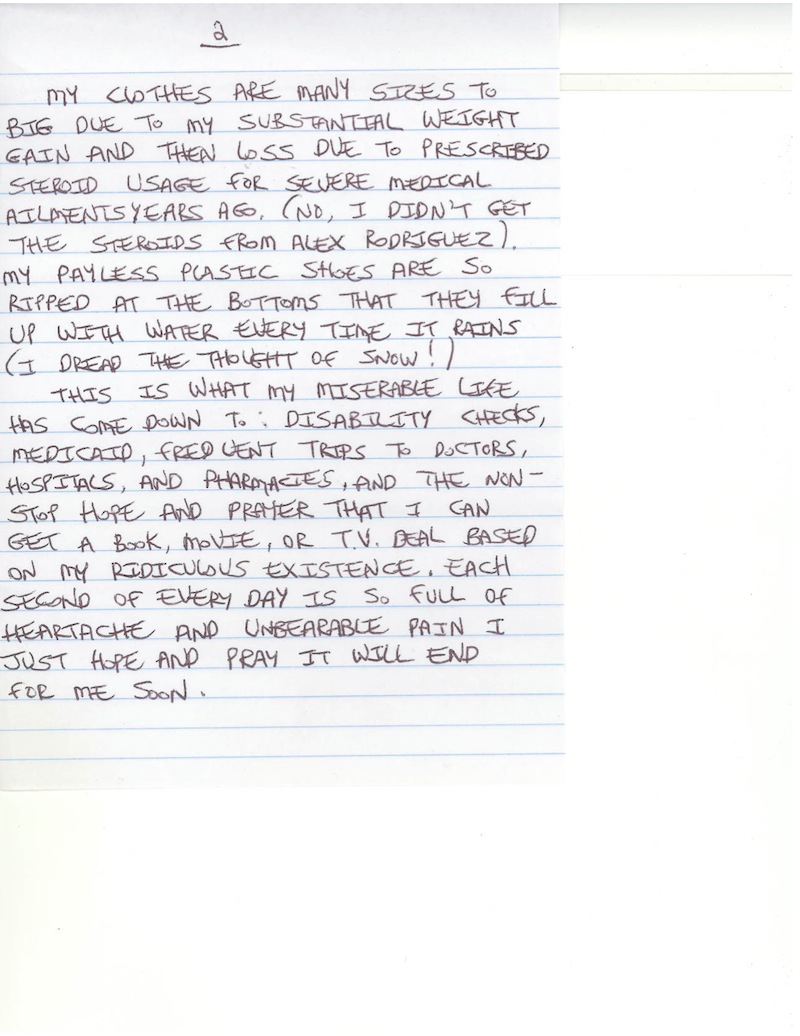 2
MY CLOTHES ARE MANY SIZES TO
BIG DUE TO MY SUBSTANTIAL WEIGHT
GAIN AND THEN LOSS DUE TO PRESCRIBED
STEROID USAGE FOR SEVERE MEDICAL
AILMENTS YEARS AGO. (NO, I DIDN'T GET
THE STEROIDS FROM ALEX RODRIGUEZ).
MY PAYLESS PLASTIC SHOES ARE SO
RIPPED AT THE BOTTOMS THAT THEY FILL
UP WITH WATER EVERY TIME IT RAINS
(I DREAD THE THOUGHT OF SNOW!)
THIS IS WHAT MY MISERABLE LIFE
HAS COME DOWN TO: DISABILITY CHECKS,
MEDICAID, FREQUENT TRIPS TO DOCTORS,
HOSPITALS, AND PHARMACIES, AND THE NON-
STOP HOPE AND PRAYER THAT I CAN
GET A BOOK, MOVIE, OR T.V. DEAL BASED
ON MY RIDICULOUS EXISTENCE. EACH
SECOND OF EVERY DAY IS SO FULL OF
HEARTACHE AND UNBEARABLE PAIN I
JUST HOPE AND PRAY IT WILL END
FOR ME SOON.